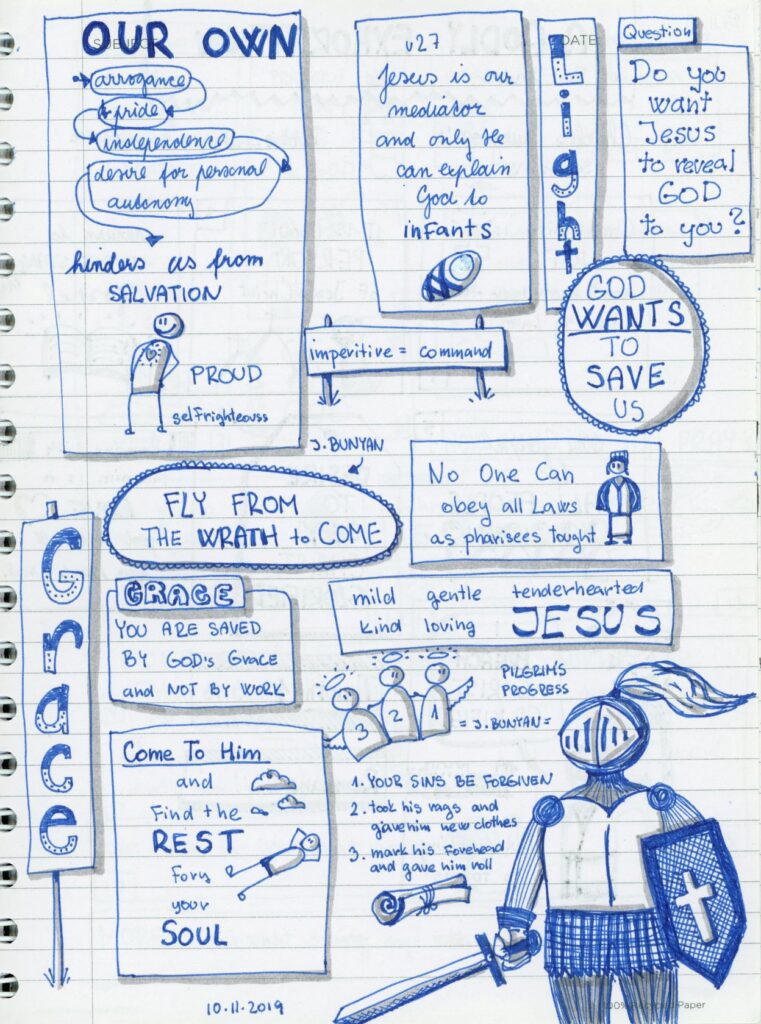 SUBJECT
OUR OWN
arrogance
pride
independence
desire for personal
autonomy
hinders us from
SALVATION
PROUD
selfrighteouss
v27
Jesus is our
mediator
and only He
can explain
God to
infants
DATE
Light
Question
Do you
want
Jesus
to reveal
GOD
to you?
imperitive = command
GOD
WANTS
TO
SAVE
US
J. BUNYAN
FLY FROM
THE WRATH to COME
No One Can
obey all Laws
as pharisees tought
Grace
GRACE
YOU ARE SAVED
BY GOD's Grace
and NOT BY WORK
mild gentle tenderhearted
kind loving JESUS
3 2 1
PILGRIM'S
PROGRESS
= J. BUNYAN =
Come To Him
and
Find the
REST
Fory
your
SOUL
1. YOUR SINS BE FORGIVEN
2. took his rags and
gave him new clothes
3. mark his Forehead
and gave him roll
10.11.2019
100% Recycled Paper